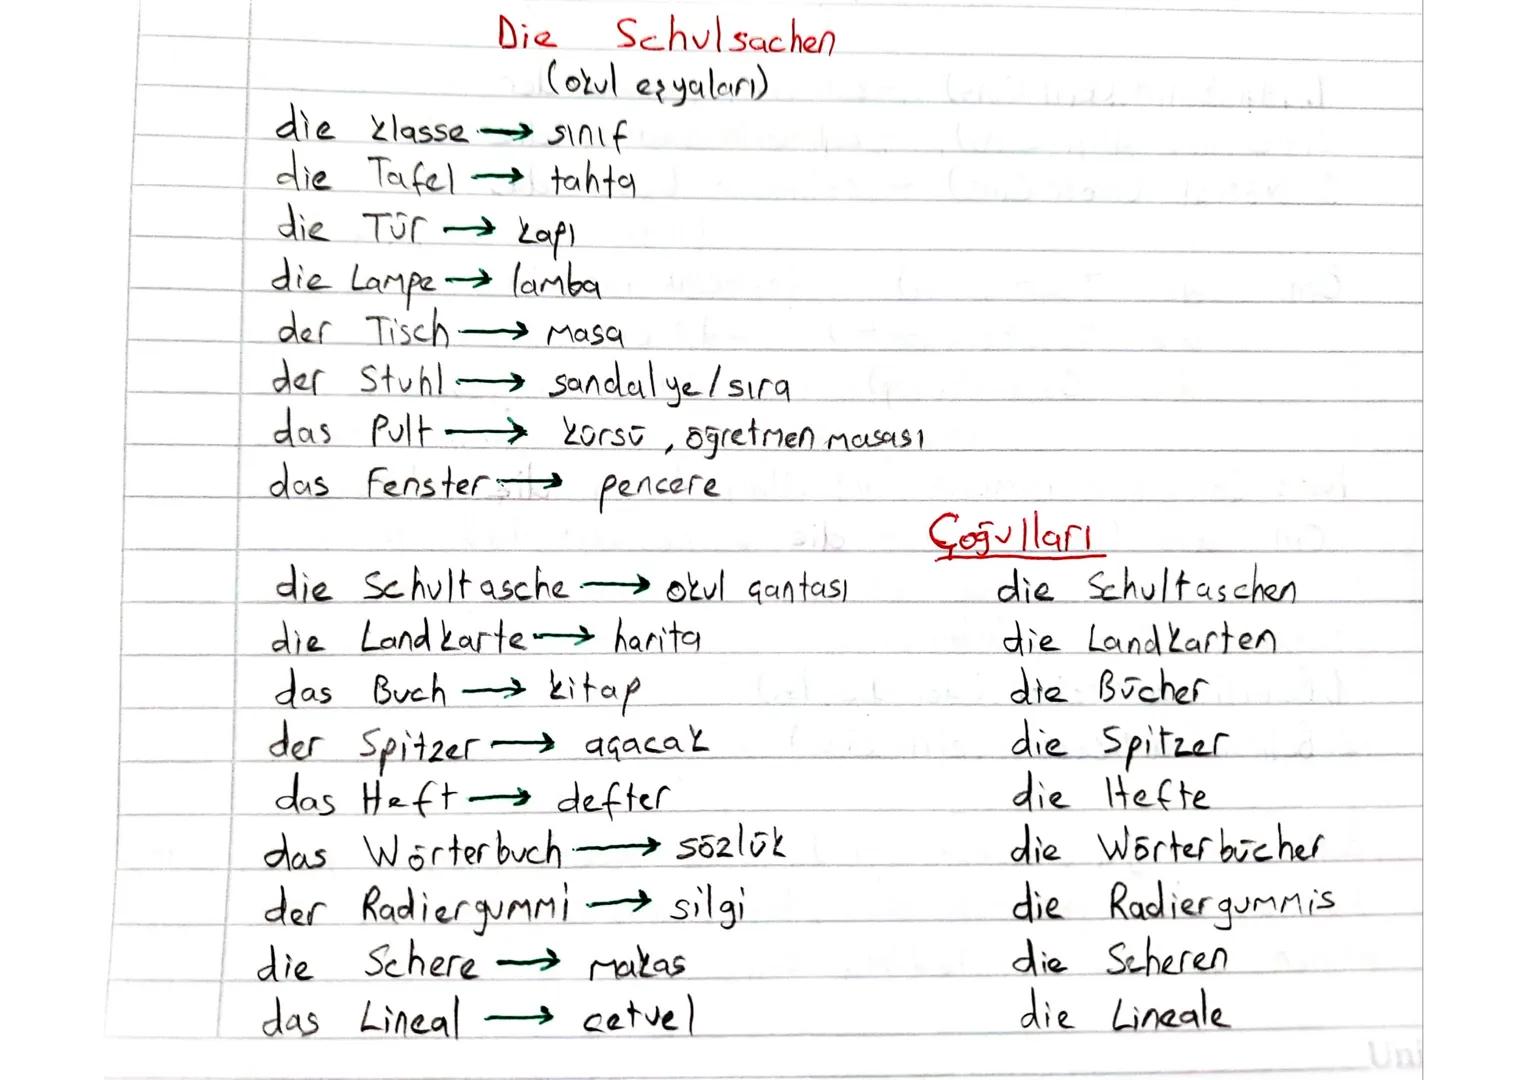 Die Schulsachen
(okul eşyaları)
die Klasse → sınıf
die Tafel → tahta
die Tür → kapı
die Lampe → lamba
der Tisch → masa
der Stuhl → sandalye/sıra
das Pult → kürsü, öğretmen masası
das Fenster → pencere
Çoğulları
die Schultasche → okul çantası die Schultaschen
die Landkarte → harita die Landkarten
das Buch → kitap die Bücher
der Spitzer → açacak die Spitzer
das Heft → defter die Hefte
das Wörterbuch → sözlük die Wörterbücher
der Radiergummi → silgi die Radiergummis
die Schere → makas die Scheren
das Lineal → cetvel die Lineale
Uni